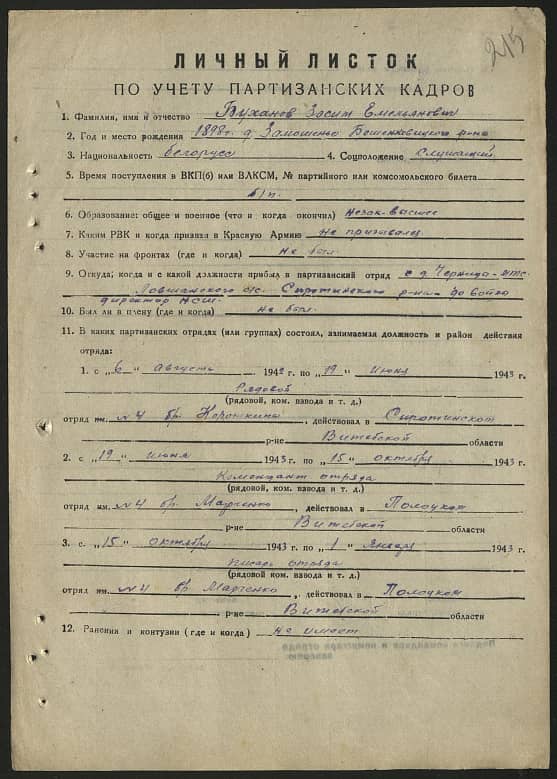 215
ЛИЧНЫЙ ЛИСТОК
ПО УЧЕТУ ПАРТИЗАНСКИХ КАДРОВ
1. Фамилия, имя и отчество Буханов Зосим Емельянович
2. Год и место рождения 1898 г. д. Замошенье Бешенковицкого р-на
3. Национальность белорусс 4. Соцположение Служащий
5. Время поступления в ВКП(б) или ВЛКСМ, № партийного или комсомольского билета
б/п.
6. Образование: общее и военное (что и когда окончил) незак. высшее
7. Каким РВК и когда призван в Красную Армию не призывался
8. Участие на фронтах (где и когда) не был
9. Откуда; когда и с какой должности прибыл в партизанский отряд с д.
с/с. Сиротинского р-на до войны
директор НСШ.
10. Был ли в плену (где и когда) не был.
11. В каких партизанских отрядах (или группах) состоял, занимаемая должность и район действия
отряда:
1. с „6" августа 1942 г. по „19" июня 1943 г.
Рядовой
(рядовой, ком. взвода и т. д.)
отряд им. №4 бр. Короткина, действовал в Сиротинском
р-не Витебской области
2. с „19" июня 1943 г. по „15" октября 1943 г.
Комендант отряда
(рядовой, ком. взвода и т. д.)
отряд им. №4 бр. Марченко, действовал в Полоцком
р-не Витебской области
3. с „15" октября 1943 г. по „1" января 1943 г.
писарь отряда
(рядовой, ком. взвода и т. д.)
отряд им. №4 бр. Марченко, действовал в Полоцком
р-не Витебской области
12. Ранения и контузии (где и когда) не имеет